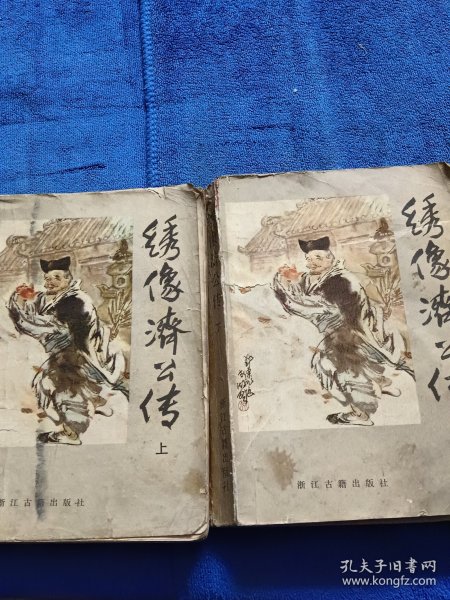 绣像济公传
上
浙江古籍出版社
绣像济公传
浙江古籍出版社
孔夫子旧书网
www.kongfz.com